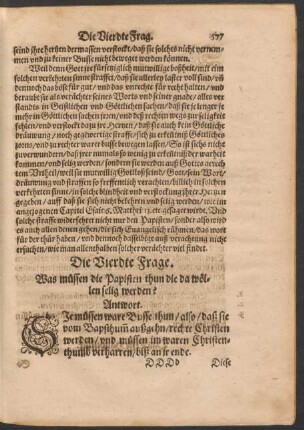 Die Vierdte Frag. 577
seind jhre hertzen dermassen verstockt / daß sie solches nicht vernem-
men vnd zu keiner Busse nicht beweget werden können.
Weil denn Gott jre fürsetzlich mutwillige boßheit / mit ein
solchen verkehrten sinne straffet / daß sie allerley laster voll sind / vñ
dennoch das böse für gut / vnd das vnrechte für recht halten / vnd
beraubt sie als verächter seines Worts vnd seiner gnade / alles ver-
standts in Geistlichen vnd Göttlichen sachen / daß sie je lenger je
mehr in Göttlichen sachen irren / vnd deß rechten wegs zur seligkeit
fehlen / vnd verstockt dazu jre Hertzen / daß sie auch kein Göttliche
dräuwung / noch gegenwertige straffe / sich zur erkäntnuß Göttliches
zorns / vnd zu warer busse bewegen lassen / So ist sichs nicht
zuverwundern / daß jrer niemals so wenig zu erkäntniß der warheit
kommen / vnd selig werden / sondern sie werden auß Gottes gerech-
tem Vrtheil / weil sie mutwillig Gottloß seind / Gott / sein Wort /
dräuwung vnd straffen so freffentlich verachten / billich in solchen
verkehrten sinne / in solche blindheit vnd verstockung jhrer Hertzen
gegeben / auff daß sie sich nicht bekehren vnd selig werden / wie im
angezogenen Capitel Esaias, Matthei 13. etc. gesaget wirdt. Vnd
solche straffe widerfehret nicht nur den Papisten / sonder also wird
es auch allen denen gehen / die sich Euangelisch rühmen / das wort
für der thür haben / vnd dennoch dasselbige auß verachtung nicht
erfahren / wie man allenthalben solcher verächter viel findet.
Die Vierdte Frage.
Was müssen die Papisten thun die da wöl-
len selig werden?
Antwort.
SJe müssen ware Busse thun / also / daß sie
vom Bapsthum̃ außgehn / rechte Christen
werden / vnd müssen im waren Christen-
thumb verharren / biß an jr ende.
DDDd Diese